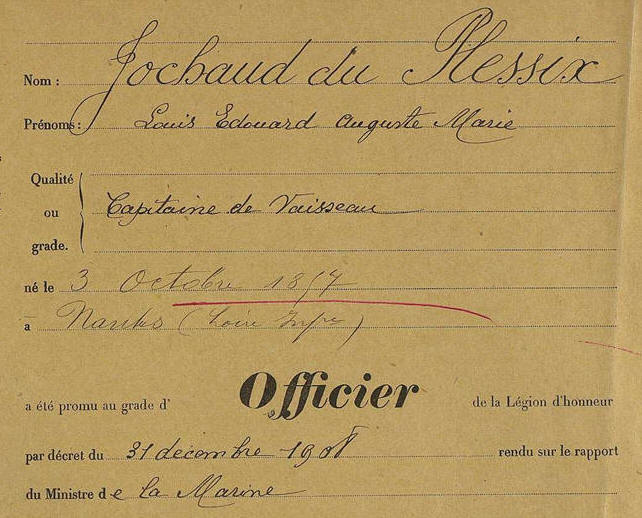 Nom : Jochaud du Plessix
Prénoms : Louis Edouard Auguste Marie
Qualité
ou Capitaine de Vaisseau
grade.
né le 3 Octobre 1857
à Nantes (Loire Infre)
a été promu au grade d' Officier de la Légion d'honneur
par décret du 31 décembre 1908 rendu sur le rapport
du Ministre de la Marine